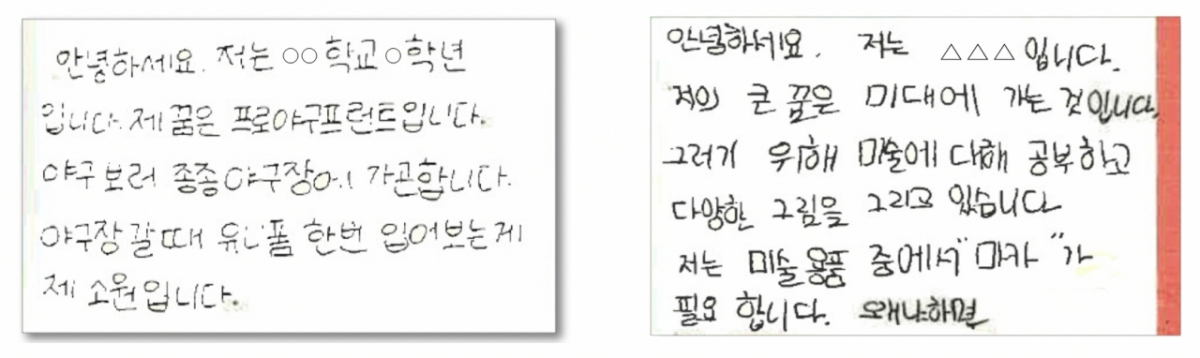 안녕하세요. 저는 ○○학교 ○학년
입니다. 제 꿈은 프로야구프런트입니다.
야구 보러 종종 야구장에 가곤합니다.
야구장 갈때 유니폼 한번 입어보는게
제 소원입니다.
안녕하세요. 저는 △△△입니다.
저의 큰 꿈은 미대에 가는 것입니다.
그러기 위해 미술에 대해 공부하고
다양한 그림을 그리고 있습니다
저는 미술용품 중에서 "마카"가
필요 합니다. 왜냐하면